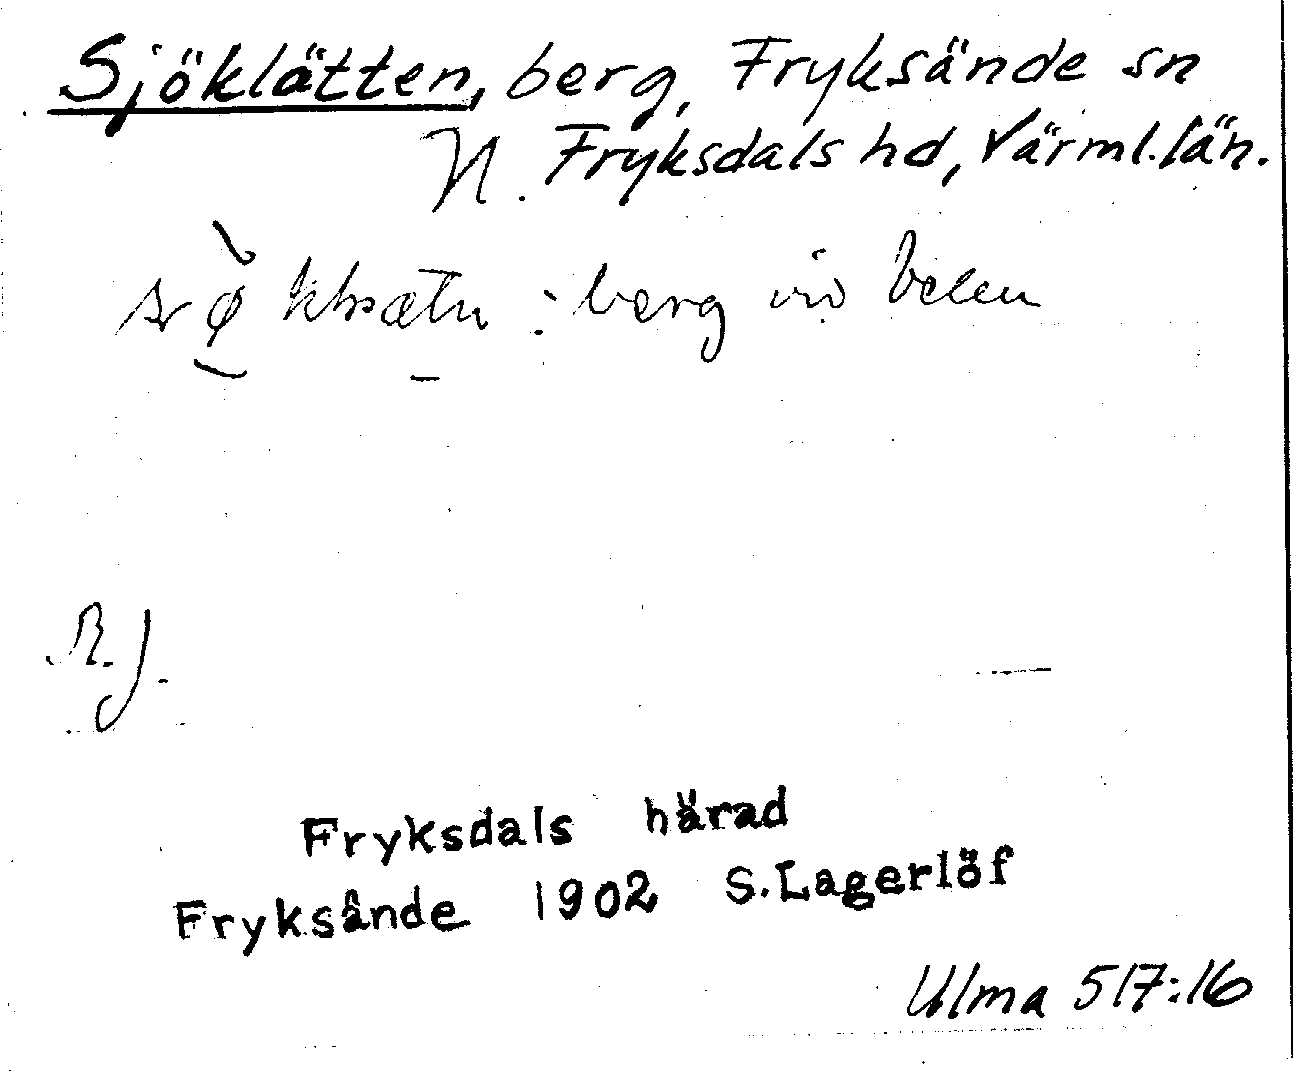 Sjöklätten, berg, Fryksände sn
N. Fryksdals hd, Värml. län.
: berg vid
R. J.
Fryksdals härad
Fryksände 1902 S. Lagerlöf
Ulma 517:16